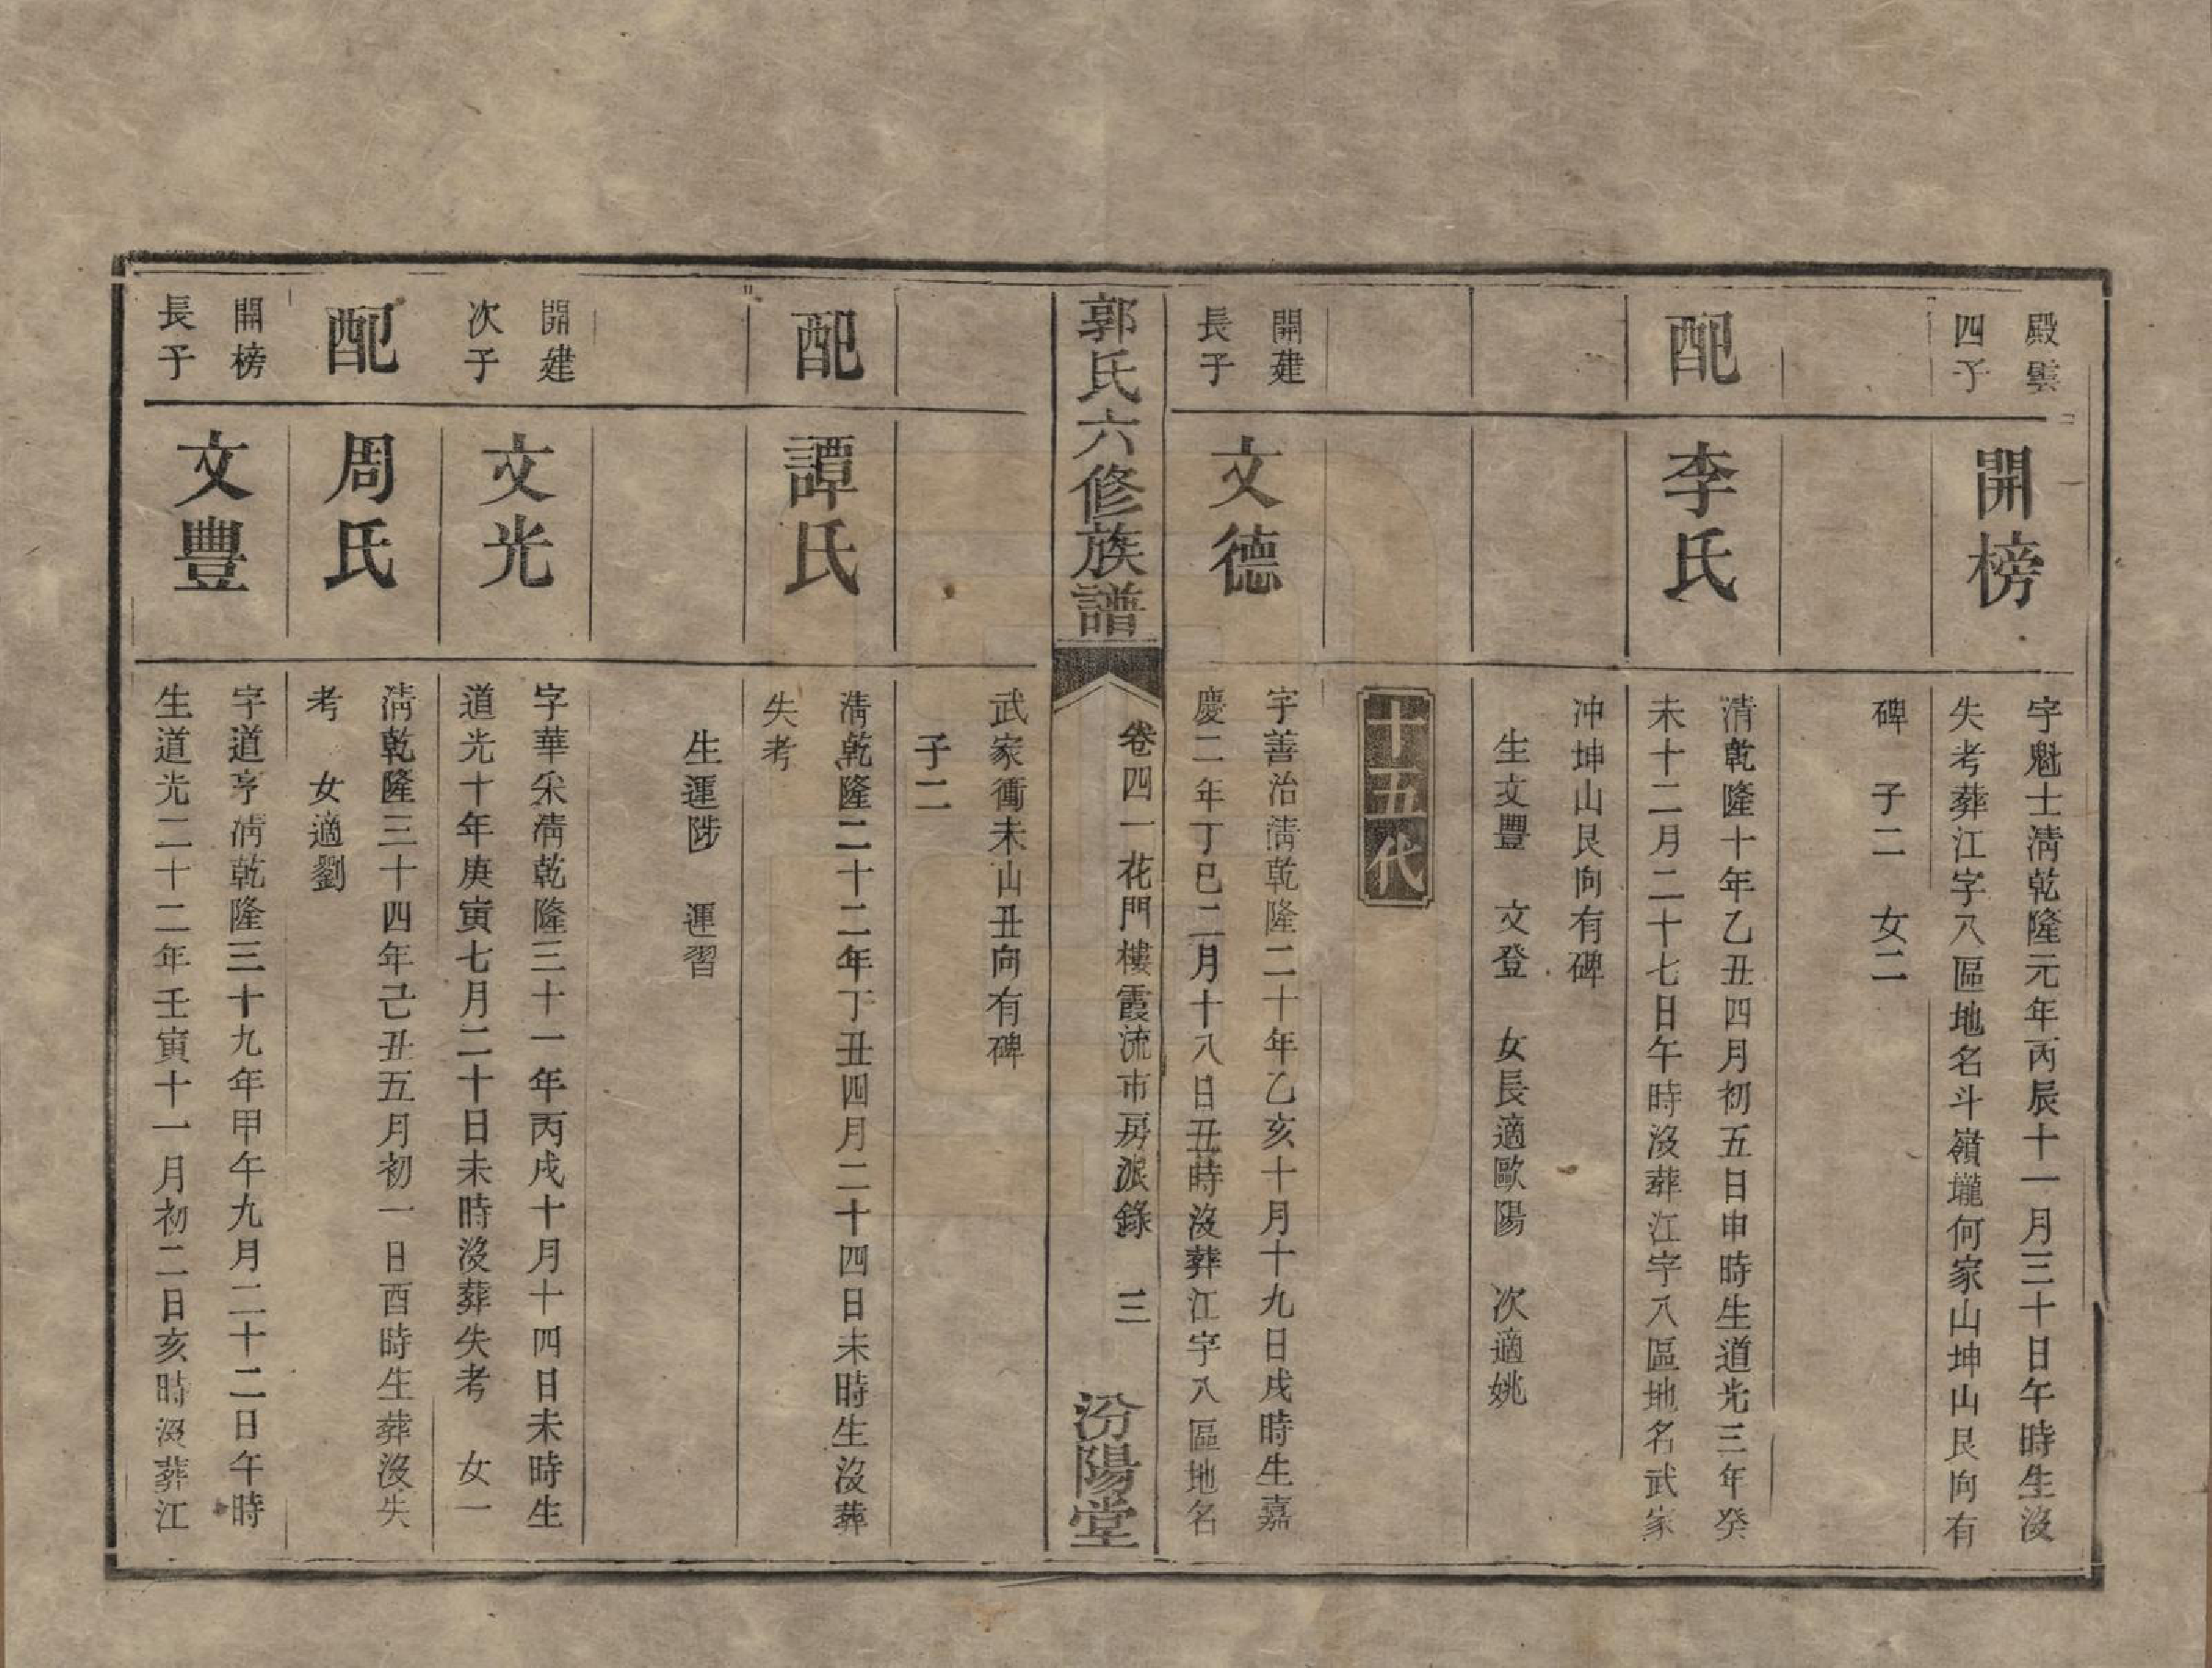 殿雲
四子
開榜
字魁士淸乾隆元年丙辰十一月三十日午時生沒
失考葬江字八區地名斗嶺壠何家山坤山艮向有
碑　子二　女二
配
李氏
淸乾隆十年乙丑四月初五日申時生道光三年癸
未十二月二十七日午時沒葬江字八區地名武家
冲坤山艮向有碑
生文豐　文登　女長適歐陽　次適姚
十五代
開建
長子
文德
字善治淸乾隆二十年乙亥十月十九日戌時生嘉
慶二年丁巳二月十八日丑時沒葬江字八區地名
郭氏六修族譜
卷四一花門樓霞流市房派錄　三
汾陽堂
武家衝未山丑向有碑
子二
配
譚氏
淸乾隆二十二年丁丑四月二十四日未時生沒葬
失考
生運陟　運習
開建
次子
文光
字華采淸乾隆三十一年丙戌十月十四日未時生
道光十年庚寅七月二十日未時沒葬失考　女一
配
周氏
淸乾隆三十四年己丑五月初一日酉時生葬沒失
考　女適劉
開榜
長子
文豐
字道亨淸乾隆三十九年甲午九月二十二日午時
生道光二十二年壬寅十一月初二日亥時沒葬江